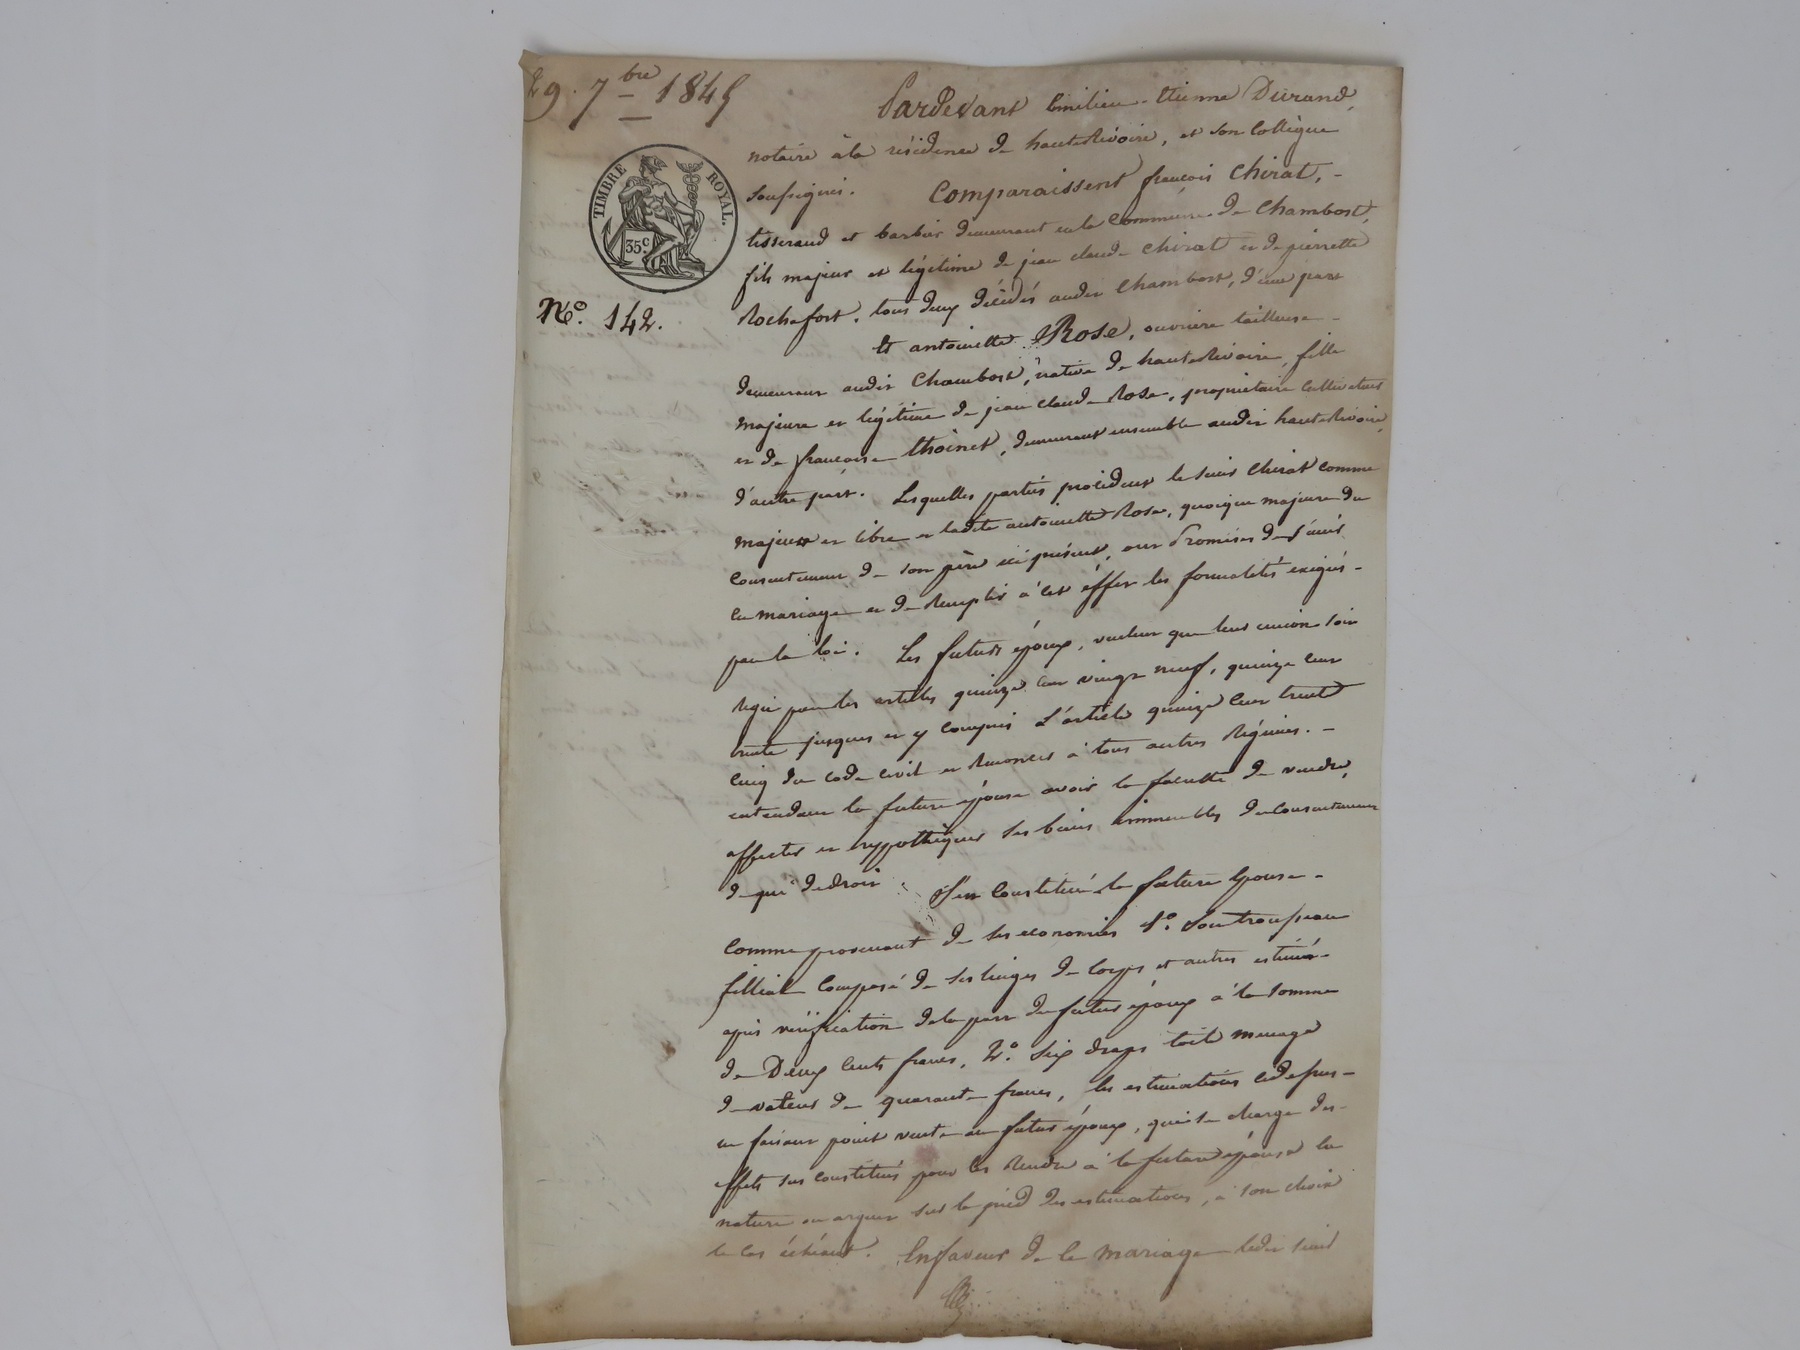 29. 7bre 1845
TIMBRE ROYAL.
35c
No. 142.
Pardevant Emilien-Etienne Durand,
notaire à la résidence de hauteRivoire, et son Collègue
soussignés. Comparaissent françois Chirat, -
tisserand et barbier demeurant en la Commune de Chambost,
fils majeur et légitime de jean claude Chirat et de pierrette
Rochefort, tous deux décédés audit Chambost, d'une part
Et antoinette Rose, ouvrière tailleuse -
demeurant audit Chambost, native de hauteRivoire, fille
majeure et légitime de jean claude Rose, propriétaire cultivateur
et de françoise Thoinet, demeurant ensemble audit hauteRivoire,
d'autre part. Lesquelles parties procédent le sieur Chirat comme
majeur et libre et ladite antoinette Rose, quoique majeure du
consentement de son père ici présent, ont Promis de s'unir
en mariage et de Remplir à cet éffet les formalités exigées -
par la loi. Les futurs époux, veulent que leur union soit
régie par les articles quinze cent vingt neuf, quinze cent
trente jusques et y compris L'article quinze cent trente
cinq du code civil et Renoncer à tous autres Régimes. -
entendant la future épouse avoir la faculté de vendre,
affecter et hyppothéquer ses biens immeubles du consentement
de qui dedroit. S'est Constitué la future Epouse -
Comme provenant de ses economies 1o. Son trousseau
fillial Composé de ses linges de Corps et autres estimés -
après vérification de la part du futur époux à la somme
de Deux Cents francs, 2o. Six draps toile menage
de valeur de quarante francs, les estimations cidessus -
ne faisant point vente au futur époux, qui se charge des -
effets sus constitués pour les Rendre à la future épouse en
nature ou argent sur le pied des estimations, à son choix
le Cas échéant. En faveur de ce mariage ledit sieur